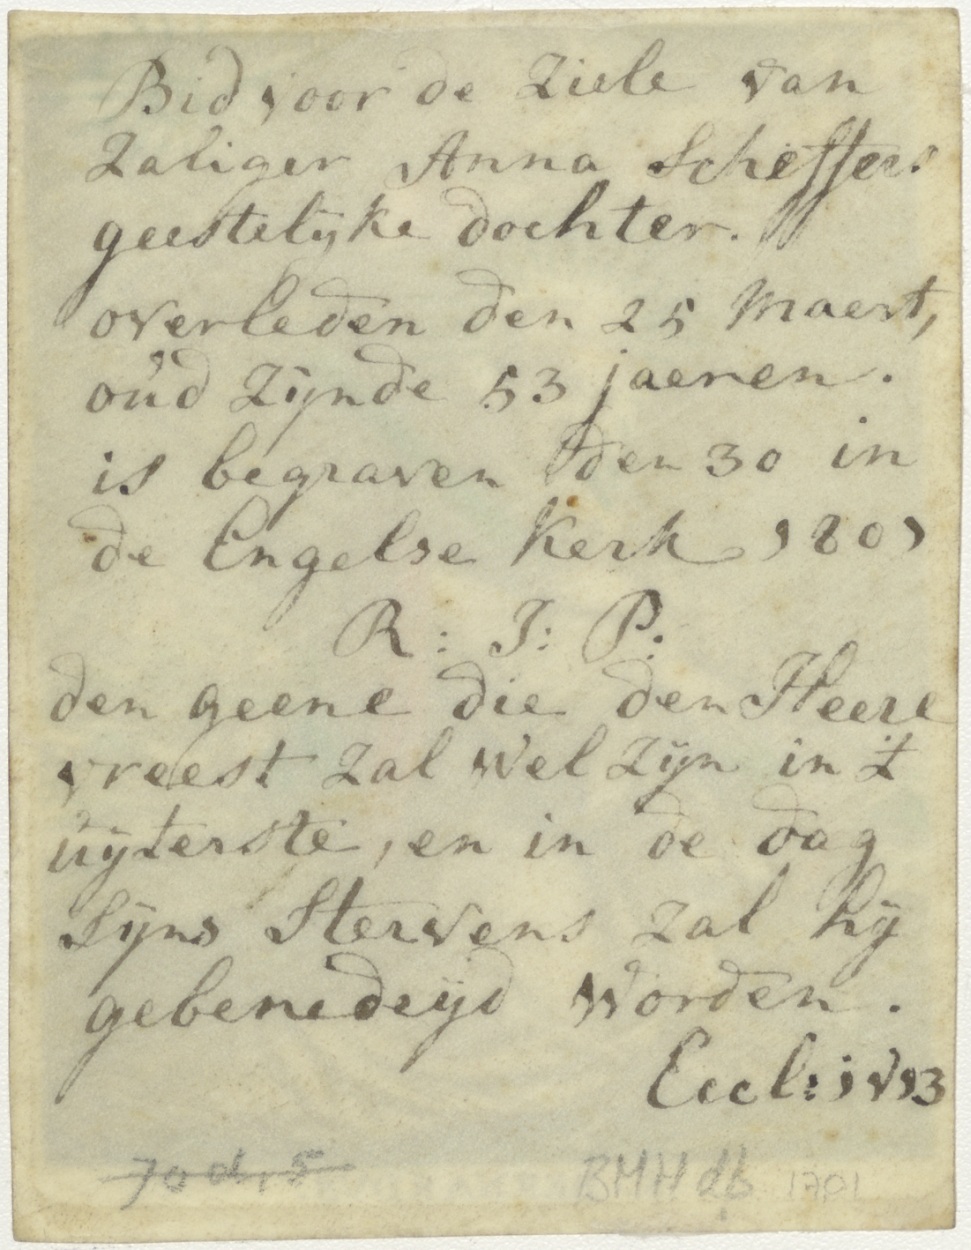 Bid voor de Ziele van
Zaliger Anna Scheffers
geestelijke dochter.
overleden den 25 Maert,
oud Zijnde 53 jaeren.
is begraven den 30 in
de Engelse Kerk 1801
R: I: P:
den geene die den Heere
vreest zal wel Zijn in 't
uijterste, en in de dag
Sijns Stervens zal hij
gebenedeijd worden.
Eccl: 1 v 13
BMH db 1781